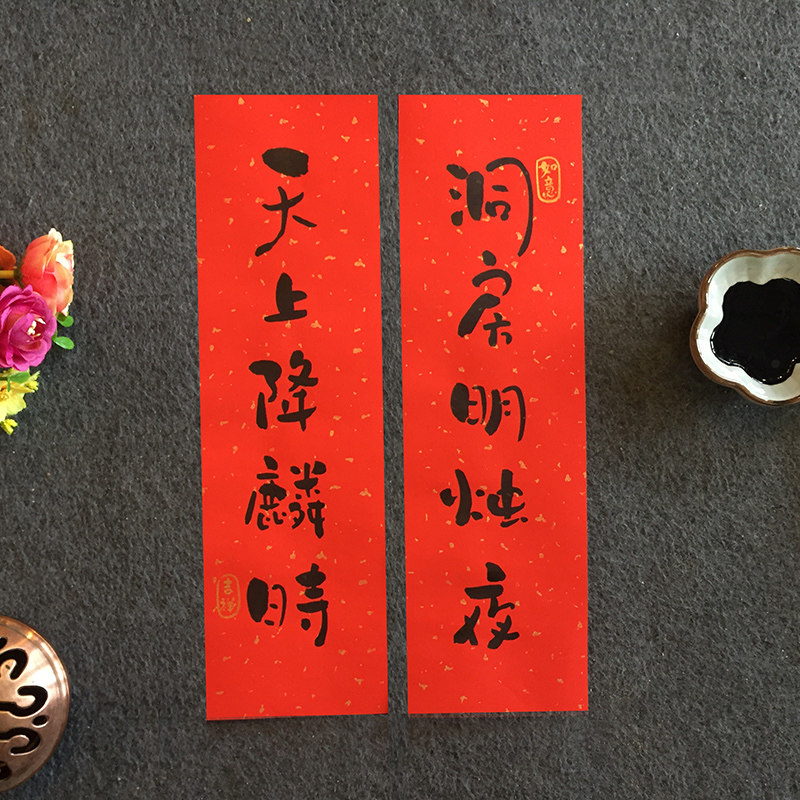 洞房明烛夜
如意
天上降麟時
吉祥